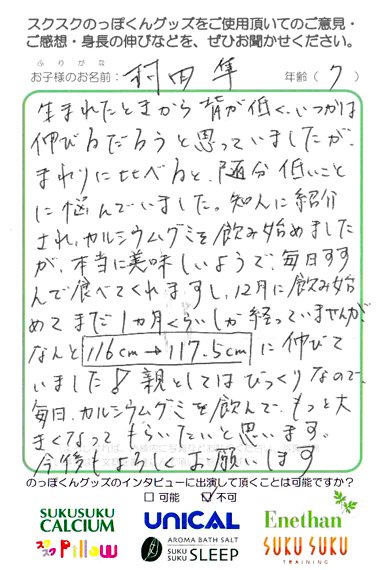 スクスクのっぽくんグッズをご使用頂いてのご意見・
ご感想・身長の伸びなどを、ぜひお聞かせください。
ふりがな
お子様のお名前: 村田 隼 年齢( 7 )
生まれたときから背が低く、いつかは
伸びるだろうと思っていましたが、
まわりに比べると、随分低いこと
に悩んでいました。知人に紹介
され、カルシウムグミを飲み始めました
が、本当に美味しいようで、毎日すす
んで食べてくれますし、12月に飲み始
めてまだ1カ月くらいしか経っていませんが、
なんと 116cm→117.5cm に伸びて
いました! 親としてはびっくりなので、
毎日、カルシウムグミを飲んで、もっと大
きくなってもらいたいと思います。
今後もよろしくお願いします
のっぽくんグッズのインタビューに出演して頂くことは可能ですか?
□ 可能 ☑ 不可
SUKUSUKU CALCIUM
UNICAL
Enethan
スクスク Pillow
AROMA BATH SALT
SUKU SUKU SLEEP
SUKU SUKU
TRAINING